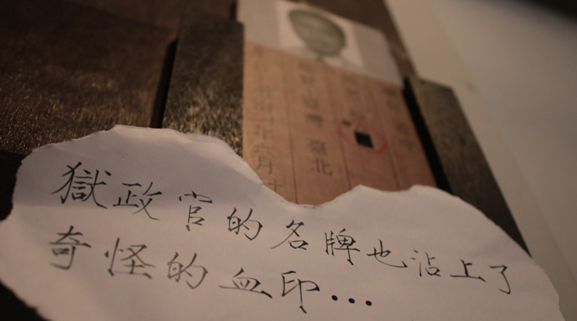 獄政官的名牌也沾上了
奇怪的血印...
臺灣 臺北